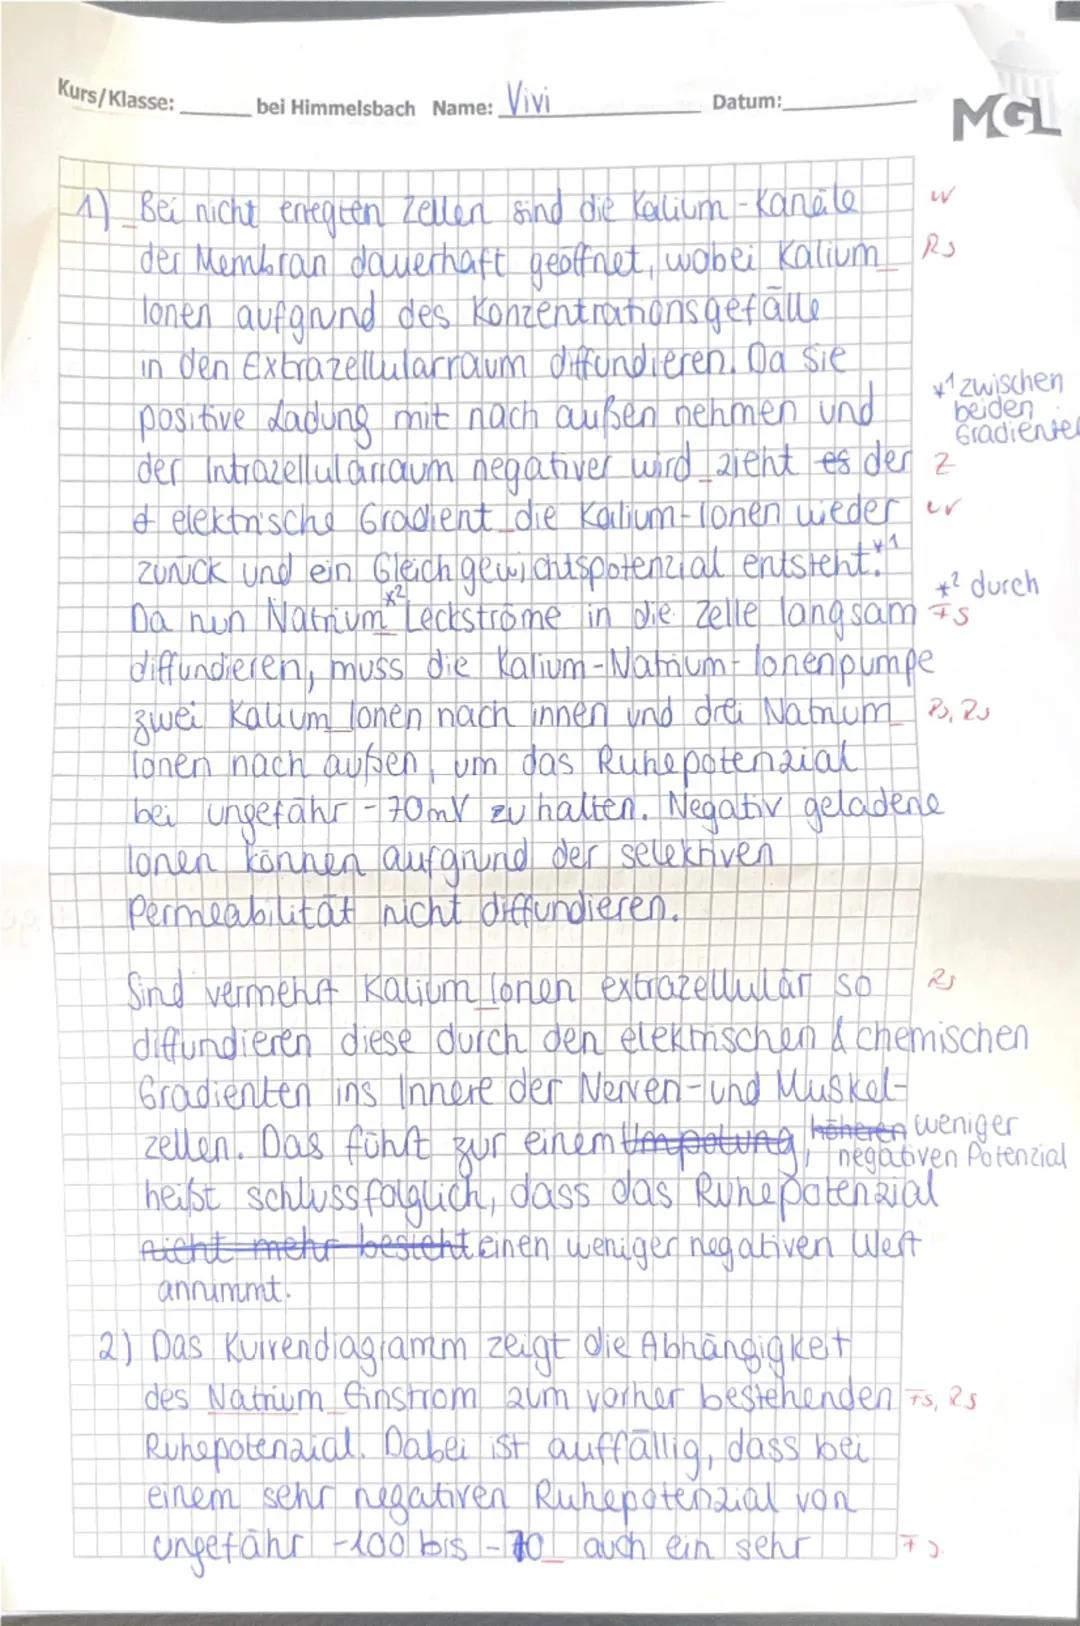 Kurs/Klasse: bei Himmelsbach Name: Vivi Datum:
MGL
1) Bei nicht erregten Zellen sind die Kalium-Kanäle W
der Membran dauerhaft geöffnet, wobei Kalium Rs
Ionen aufgrund des Konzentrationsgefälle
in den Extrazellularraum diffundieren. Da sie
positive Ladung mit nach außen nehmen und
*1 zwischen
beiden
Gradienten
der Intrazellularraum negativer wird zieht es der Z
elektrische Gradient die Kalium-Ionen wieder W
zurück und ein Gleichgewichtspotenzial entsteht.*1
*2 durch
Da nun Natrium *2 Leckströme in die Zelle langsam Fs
diffundieren, muss die Kalium-Natrium-Ionenpumpe
zwei Kalium Ionen nach innen und drei Natrium Rs, Rs
Ionen nach außen, um das Ruhepotenzial
bei ungefähr -70mV zu halten. Negativ geladene
Ionen können aufgrund der selektiven
Permeabilität nicht diffundieren.
Sind vermehrt Kalium Ionen extrazellulär so Rs
diffundieren diese durch den elektrischen & chemischen
Gradienten ins Innere der Nerven-und Muskel-
zellen. Das führt zur einem Umpolung, höheren weniger
negativen Potenzial
heißt schlussfolglich, dass das Ruhepotenzial
nicht mehr besteht einen weniger negativen Wert
annimmt.
2) Das Kurvendiagramm zeigt die Abhängigkeit
des Natrium Einstrom zum vorher bestehenden Fs, Rs
Ruhepotenzial. Dabei ist auffällig, dass bei
einem sehr negativen Ruhepotenzial von
ungefähr -100 bis -70 auch ein sehr Fs